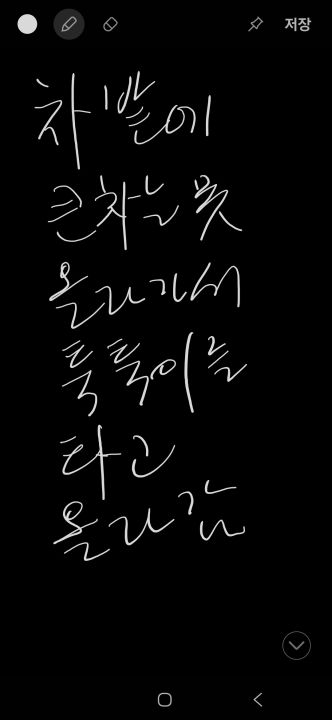 저장
차 밭에
큰차는 못
올라가서
툭툭이를
타고
올라감